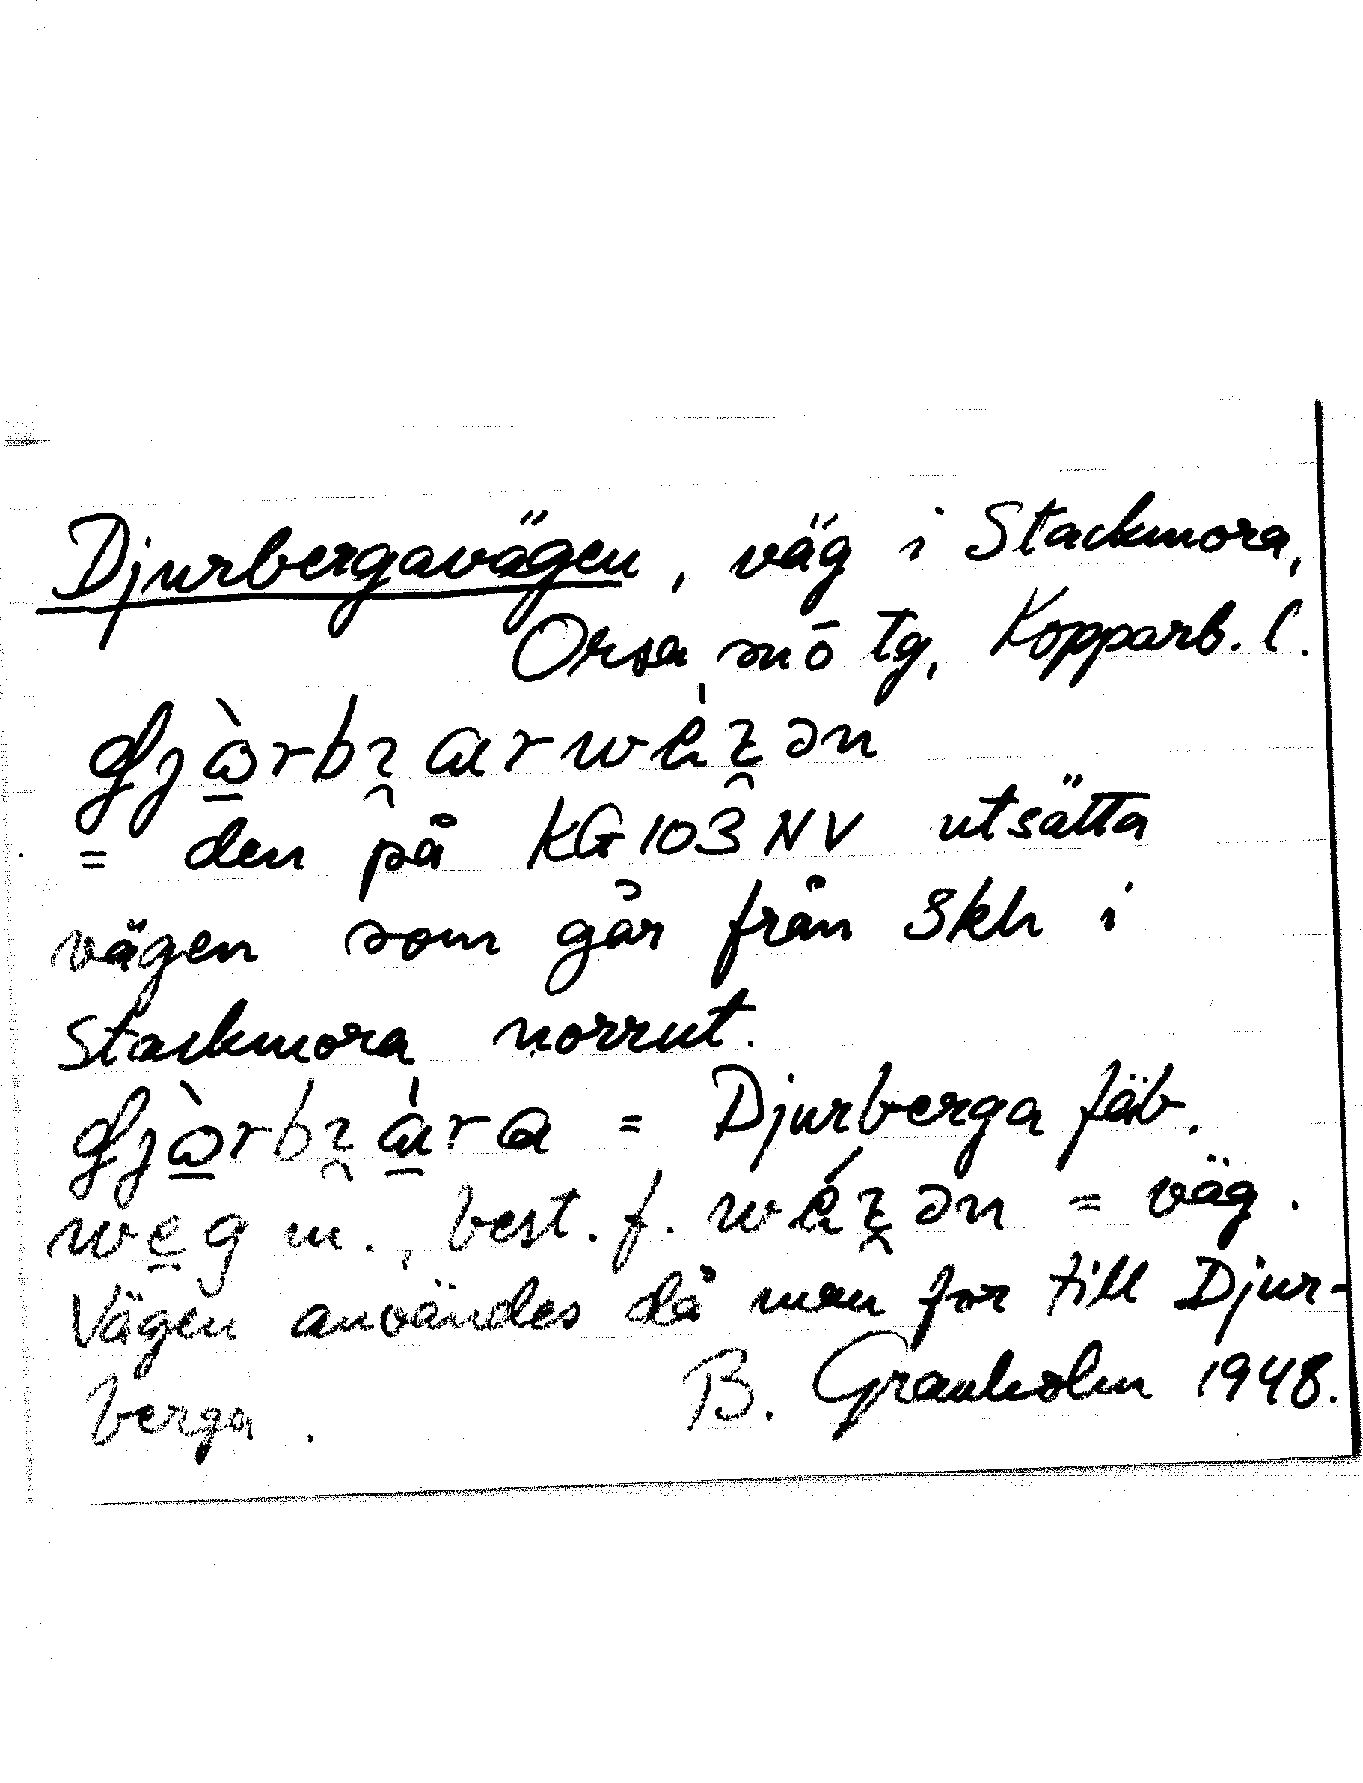 Djurbergavägen, väg i Stackmora,
Orsa sn ō tg, Kopparb. l.
= den på KG 103 NV utsätta
vägen som går från Skh i
Stackmora norrut.
= Djurberga fäb.
m., best. f. = väg.
Vägen användes då man for till Djur-
berga. B. Granholm 1948.